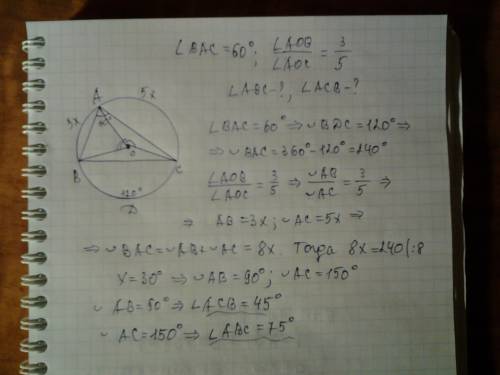 ∠BAC = 60°; ∠AOB/∠AOC = 3/5
∠ABC-?, ∠ACB-?
A
5x
3x
60°
O
B
C
120°
D
∠BAC = 60° ⇒ ◡BDC = 120° ⇒
⇒ ◡BAC = 360° - 120° = 240°
∠AOB/∠AOC = 3/5 ⇒ ◡AB/◡AC = 3/5 ⇒
⇒ AB = 3x; ◡AC = 5x ⇒
⇒ ◡BAC = ◡AB + ◡AC = 8x. Тогда 8x = 240 |:8
X = 30° ⇒ ◡AB = 90°; ◡AC = 150°
◡AB = 90° ⇒ ∠ACB = 45°
◡AC = 150° ⇒ ∠ABC = 75°